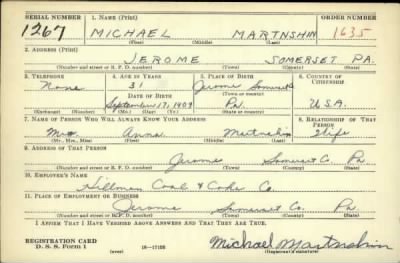 SERIAL NUMBER 1. NAME (Print) ORDER NUMBER
1267 MICHAEL MARTNSHIN 1635
(First) (Middle) (Last)
2. ADDRESS (Print)
JEROME SOMERSET PA.
(Number and street or R. F. D. number) (Town) (County) (State)
3. TELEPHONE 4. AGE IN YEARS 5. PLACE OF BIRTH 6. COUNTRY OF CITIZENSHIP
None 31 Jerome Somerset U.S.A.
DATE OF BIRTH (Town or county)
September 17, 1909 Pa.
(Mo.) (Day) (Yr.) (State or country)
7. NAME OF PERSON WHO WILL ALWAYS KNOW YOUR ADDRESS 8. RELATIONSHIP OF THAT PERSON
Mrs Anna Martnshin Wife
(Mr., Mrs., Miss) (First) (Middle) (Last)
9. ADDRESS OF THAT PERSON
Jerome Somerset Co. Pa
(Number and street or R. F. D. number) (Town) (County) (State)
10. EMPLOYER'S NAME
Hillman Coal & Coke Co.
11. PLACE OF EMPLOYMENT OR BUSINESS
Jerome Somerset Co. Pa
(Number and street or R. F. D. number) (Town) (County) (State)
I AFFIRM THAT I HAVE VERIFIED ABOVE ANSWERS AND THAT THEY ARE TRUE.
REGISTRATION CARD
D. S. S. Form 1 (over) 16—17105 Michael Martnshin
(Registrant's signature)